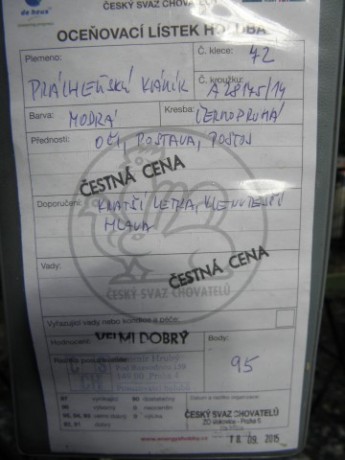 de heus
ČESKÝ SVAZ CHOVATELŮ
OCEŇOVACÍ LÍSTEK HOLUBA
Plemeno:
Č. klece: 42
PRÁCHEŇSKÝ KÁNÍK
Č. kroužku:
A 28175/14
Barva: MODRÁ
Kresba: ČERNOPRUHÁ
Přednosti: OČI, POSTAVA, POSTOJ
ČESTNÁ CENA
Doporučení: KRATŠÍ LETKA, KLENUTĚJŠÍ
HLAVA
Vady:
ČESTNÁ CENA
ČESKÝ SVAZ CHOVATELŮ
Vyřazující vady nebo komise v péče:
Hodnocení: VELMI DOBRÝ
Body:
95
97 vynikající
90 dostatečný
96 výborný
0
93, 94, 95 velmi dobrý
0 výluka
92, 91 dobrý
ČESKÝ SVAZ CHOVATELŮ
18. 09. 2015